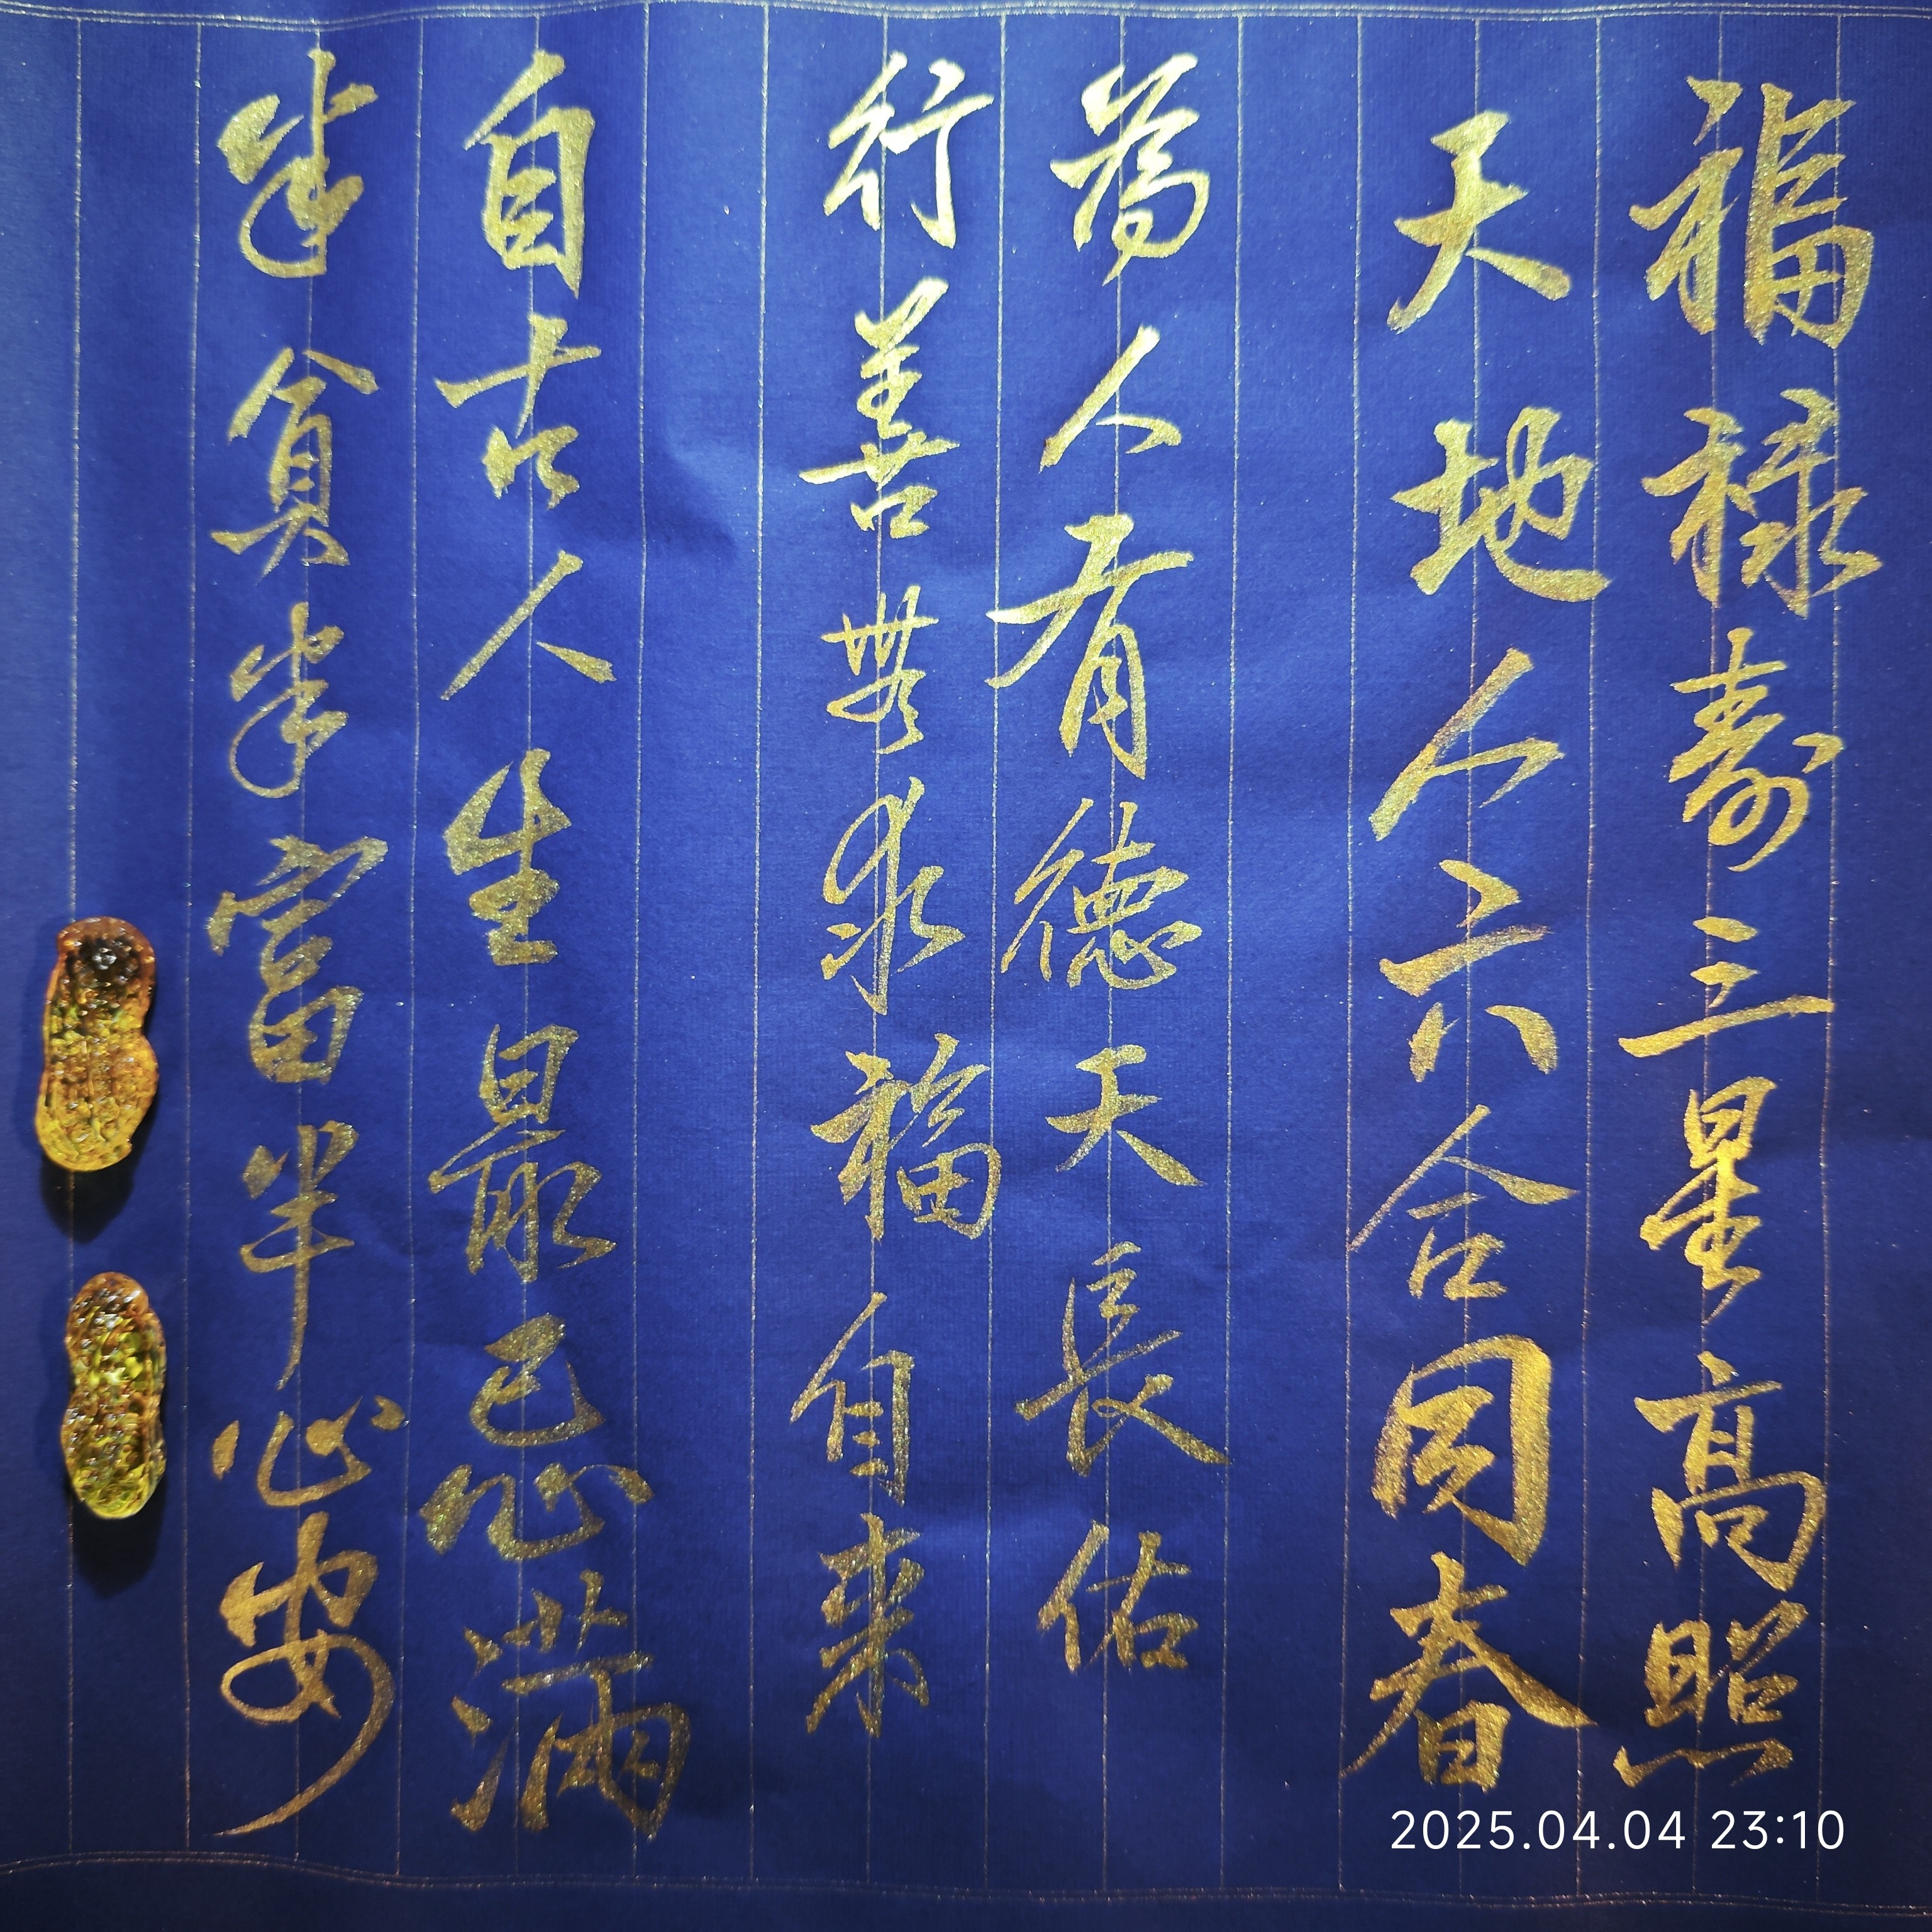 福禄寿三星高照
天地人六合同春
為人有德天長佑
行善無求福自来
自古人生最忌滿
半貧半富半心安
2025.04.04 23:10